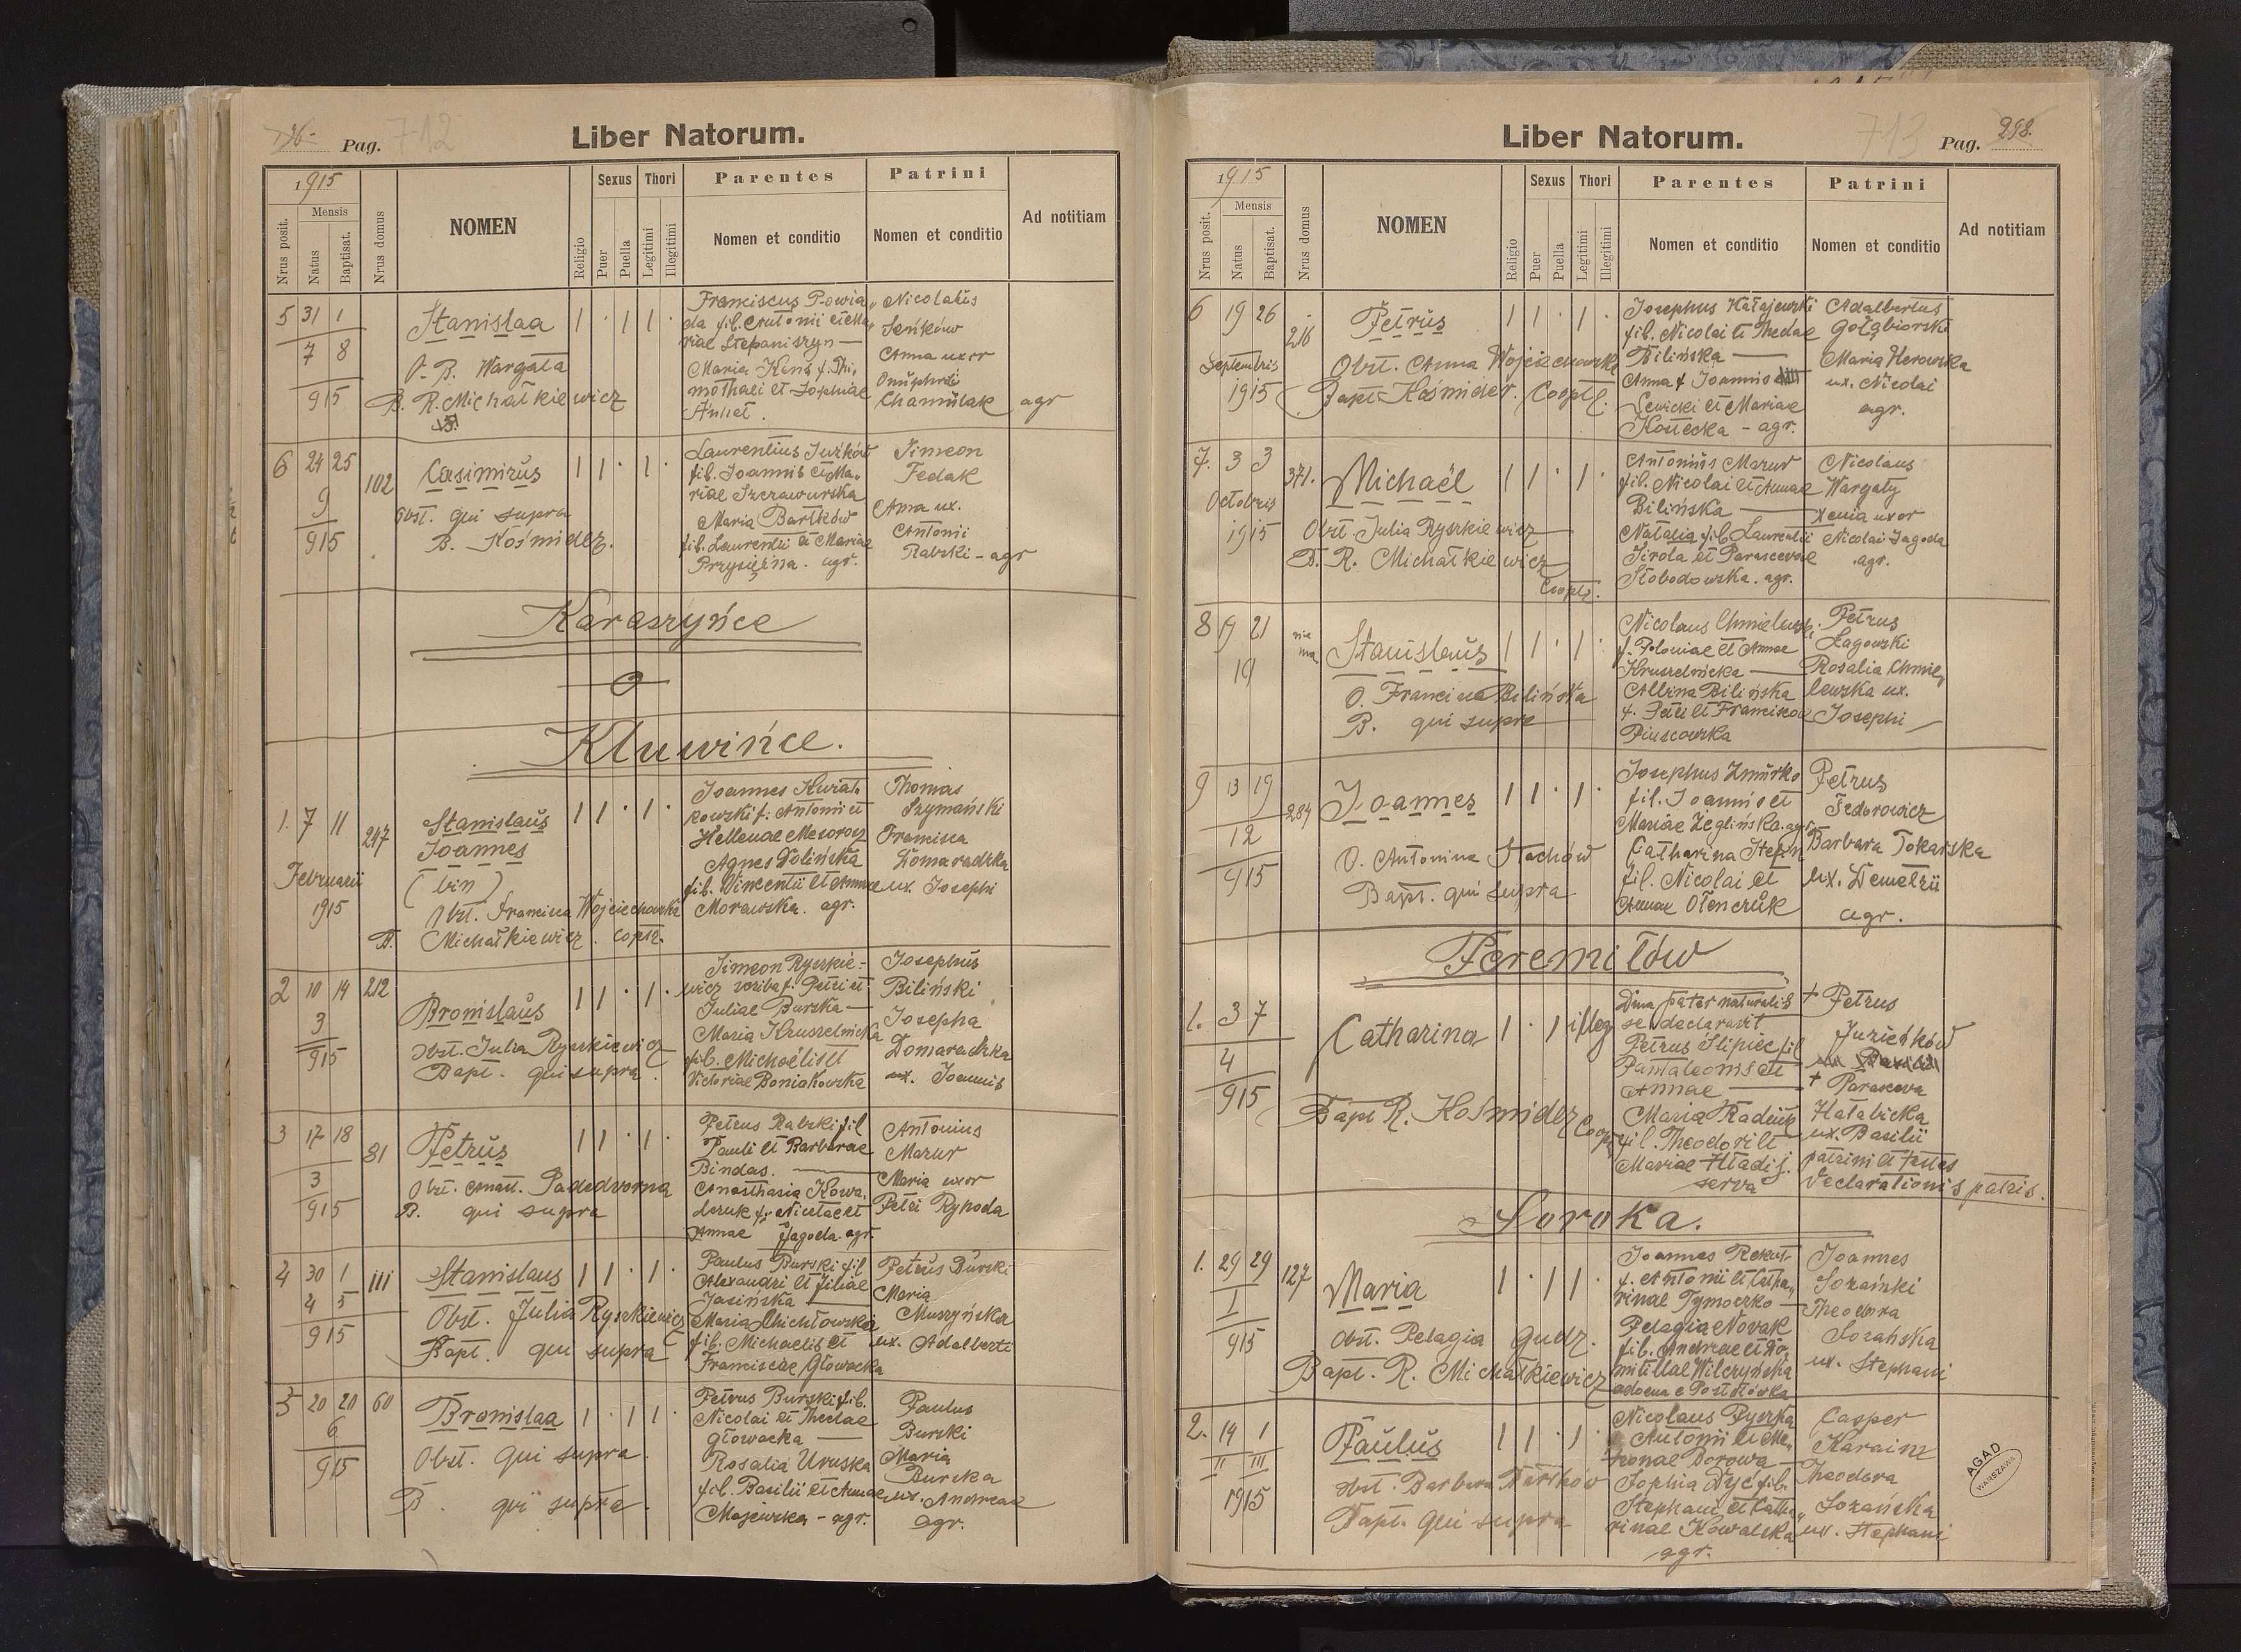 Pag. 712
Liber Natorum.
1915
Mensis
Nrus posit.
Natus
Baptisat.
Nrus domus
NOMEN
Religio
Sexus
Puer
Puella
Thori
Legitimi
Illegitimi
Parentes
Nomen et conditio
Patrini
Nomen et conditio
Ad notitiam
5 31 1
7 8
915
Stanislaa
O. B. Wargata
B. R. Michałkiewicz
Franciscus Powia„
da fil. Antonii et Ma„
riae Stepaniszyn
Maria
mothaei et Sophiae
Nicolaus
Seńków
Anna uxor
Onuphrii
Chamulak agr
6 24 25
9
915
102
Casimirus
Obst. qui supra
B. Kośmider.
Laurentius Juźków
fil. Joannis et Ma„
riae Szczawurska
Maria Bartków
fil. Laurentii et Mariae
Przysiężna. agr.
Simeon
Fedak
Anna ux.
Antonii
Rabski - agr
Karaszyńce
0
Kluwińce.
1. 7 11
Februarii
1915
247
Stanislaus
Joannes
(bin)
Obst. Francisca Wojciechowska
B. Michałkiewicz. Coptr.
Joannes Kwiat„
kowski f. Antonii et
Hellenae
Agnes Dolińska
fil. Vincentii et Annae
Morawska. agr.
Thomas
Szymański
Francisca
Domaradzka
ux. Josephi
2 10 14
3
915
212
Bronislaus
Obst. Julia Ryszkiewicz
Bapt. qui supra.
Simeon Ryszkie=
wicz scriba f. Petri et
Juliae Burska
Maria Kruszelnicka
fil. Michaëlis et
Victoriae Boniakowska
Josephus
Biliński
Josepha
Domaradzka
ux. Joannis
3 17 18
3
915
81
Petrus
Obst. Anast. Padedvorna
B. qui supra
Petrus Rabski fil
Pauli et Barbarae
Bindas.
Anasthasia Kowa„
f. Nicetae et
Annae Jagoda. agr.
Antonius
Mazur
Maria uxor
Petri Ryhoda
4 30 1
4 5
915
111
Stanislaus
Obst. Julia Ryszkiewicz
Bapt. qui supra
Paulus Burski fil
Alexandri et Juliae
Jasińska
Maria
fil. Michaelis et
Franciscae Głowacka
Petrus Burski
Maria
Muszyńska
ux. Adalberti
5 20 20
6
915
60
Bronislaa
Obst. qui supra.
B. qui supra.
Petrus Burski fil.
Nicolai et Theclae
Głowacka
Rosalia Uruska
fil. Basilii et Annae
Majewska - agr.
Paulus
Burski
Maria
Burska
ux. Andreae
agr.
Liber Natorum.
713 Pag. 298.
1915
Mensis
Nrus posit.
Natus
Baptisat.
Nrus domus
NOMEN
Religio
Sexus
Puer
Puella
Thori
Legitimi
Illegitimi
Parentes
Nomen et conditio
Patrini
Nomen et conditio
Ad notitiam
6 19 26
Septembris
1915
216
Petrus
Obst. Anna Wojciechowska
Bapt. Kośmider. Cooptr.
Josephus Hałajewski
fil. Nicolai et Theclae
Bilińska
Anna f. Joannis
Lewicki et Mariae
Kostecka - agr.
Adalbertus
Gołębiorski
Maria Herowska
ux. Nicolai
agr.
7. 3 3
Octobris
1915
371.
Michaël
Obst. Julia Ryszkiewicz
B. R. Michałkiewicz
Cooptr.
Antonius Mazur
fil. Nicolai et Annae
Bilińska
Natalia fil. Laurentii
Sirota et Parascevae
Słobodowska. agr.
Nicolaus
Wargaty
Xenia uxor
Nicolai Jagoda
agr.
8 19 21
10
nie
ma
Stanislaus
O. Francisca Bilińska
B. qui supra
Nicolaus Chmielewski
f. Poloniae et Annae
Kruszelnicka
Albina Bilińska
f. Petri et Franciscae
Petrus
Łagowski
Rosalia Chmie„
lewska ux.
Josephi
9 13 19
12
915
284
Joannes
O. Antonina Stachów
Bapt. qui supra
Josephus Żmurko
fil. Joannis et
Mariae Żeglińska. agr.
Catharina
fil. Nicolai et
Annae Olenczuk
Petrus
Fedorowicz
Barbara Tokarska
ux. Demetrii
agr.
Peremiłów
1. 3 7
4
915
Catharina
illeg
Bapt R. Kośmider Coop.
Dma pater naturalis
se declaravit
Petrus Slipiec fil
Pantaleonis et
Annae
Maria
fil. Theodori et
Mariae Hladij.
serva
+ Petrus
Juzieńków
+ Parasceva
Hałabicka
ux. Basilii
patrini et testes
declarationis patris.
Soroka.
1. 29 29
I
915
127
Maria
Obst. Pelagia Gudz.
Bapt. R. Michałkiewicz
Joannes Rekut
f. Antonii et Catha„
rinae Tymoczko
Pelagia Novak
fil. Andreae et Do„
mitillae Wilczyńska
advena e Postołówka
Joannes
Sozański
Theodora
Sozańska
ux. Stephani
2. 14 1
II III
1915
Paulus
Obst. Barbara Bartków
Bapt. qui supra
Nicolaus Pyszka
Antonii et Me„
Borowa
Sophia Dyć fil.
Stephani et Catha„
rinae Kowalska
agr.
Casper
Karaim
Theodora
Sozańska
ux. Stephani
AGAD
WARSZAWA